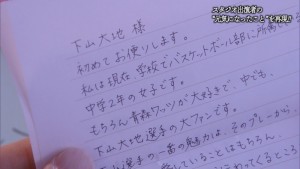 スタジオ出演者の
"元気になったこと"を再現!!
下山大地 様
初めてお便りします。
私は現在、学校でバスケットボール部に所属
中学2年の女子です。
もちろん青森ワッツが大好きで、中でも
下山大地選手の大ファンです。
選手の一番の魅力は、そのプレーから
していることはもちろん、
わってくるところ